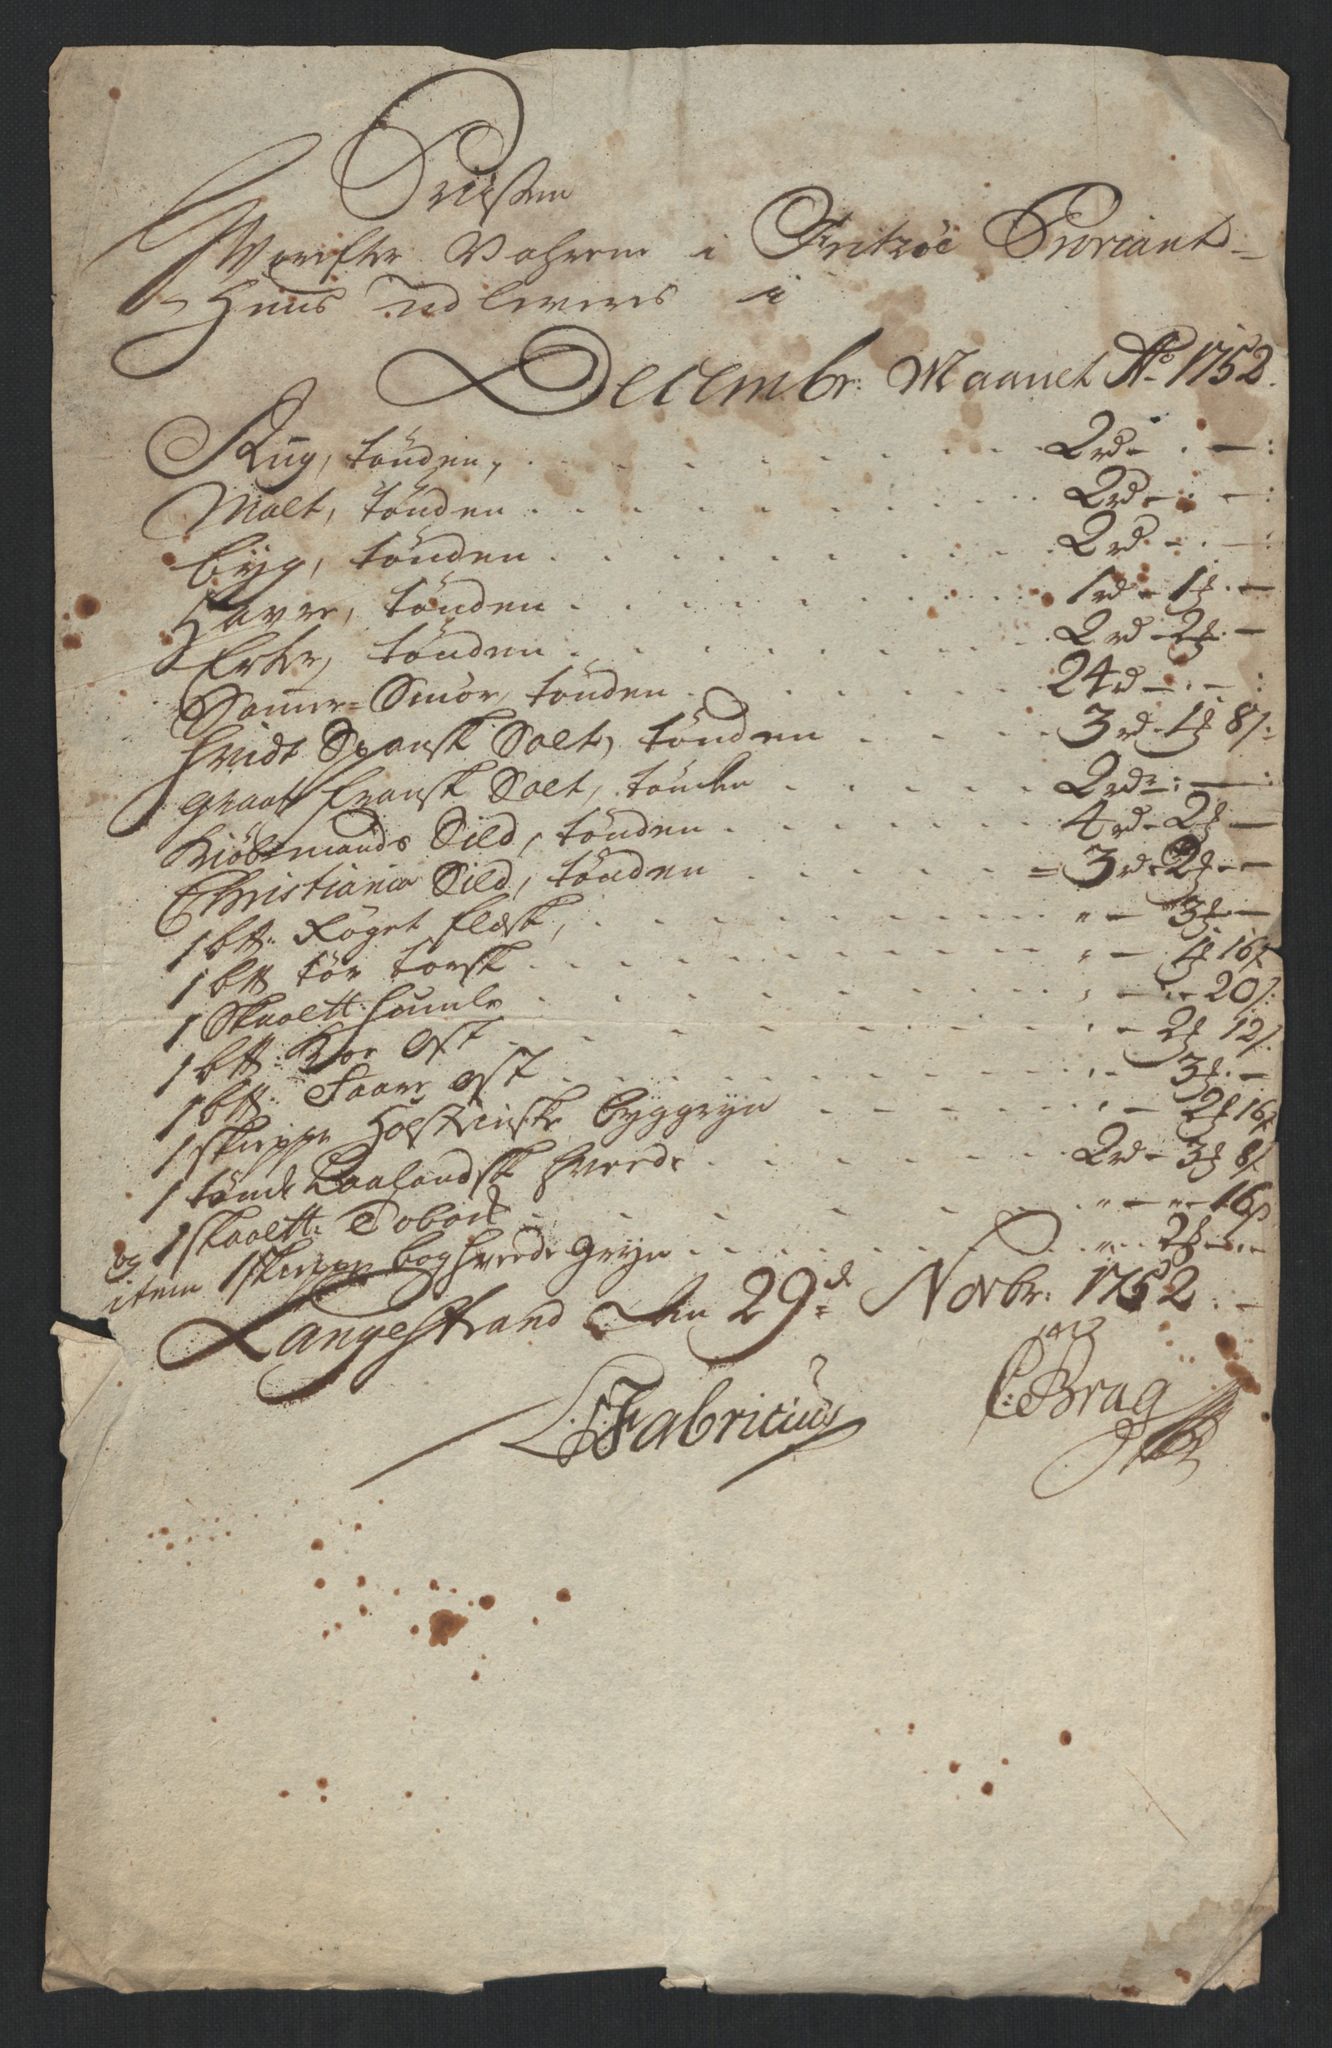 Prisen
Hvorefter Vahrene i Fritzöe Proviant-
Huus udleveres i
Decembr: Maanet Ao. 1752.
Rug, tönden, . . . 2 rd - . - :
Malt, tönden . . . 2 rd - . - :
byg, tönden . . . 2 rd - . - :
Havre, tönden . . . 1 rd - 1 ₰ . -
Erter, tönden . . . 2 rd - 2 ₰ . -
Sommer=Smör, tönden . . . 24 rd - . - :
hvidt Spansk Salt, tönden . . . 3 rd - 1 ₰ 8 /:
graat fransk Salt, tönden . . . 2 rd - : - :
Kiöbmands Sild, tönden . . . 4 rd - 2 ₰ -
Christiania Sild, tönden = 3 rd - 2 ₰ - -
1 b℔: Röget flesk, . . . " - 3 ₰ . -
1 b℔ tör torsk . . . " - 1 ₰ 16 /
1 Skaal℔ humle . . . " - " - 20 /:
1 b℔: Koe Ost . . . " - 2 ₰ 12 /.
1 b℔: Faare Ost . . . " - 3 ₰ . -
1 skieppe Holsteinske byggryn . . . " - 2 ₰ 16 /
1 tönde Laalandsk hvede . . . 2 rd - 3 ₰ 8 /.
1 skaal℔: Tobak . . . " - " - 16 /
og
item 1 skieppe boghvede gryn . . . " - 2 ₰ - " -
Langestrand den 29de Novbr: 1752. -
Fabritius C: Brug